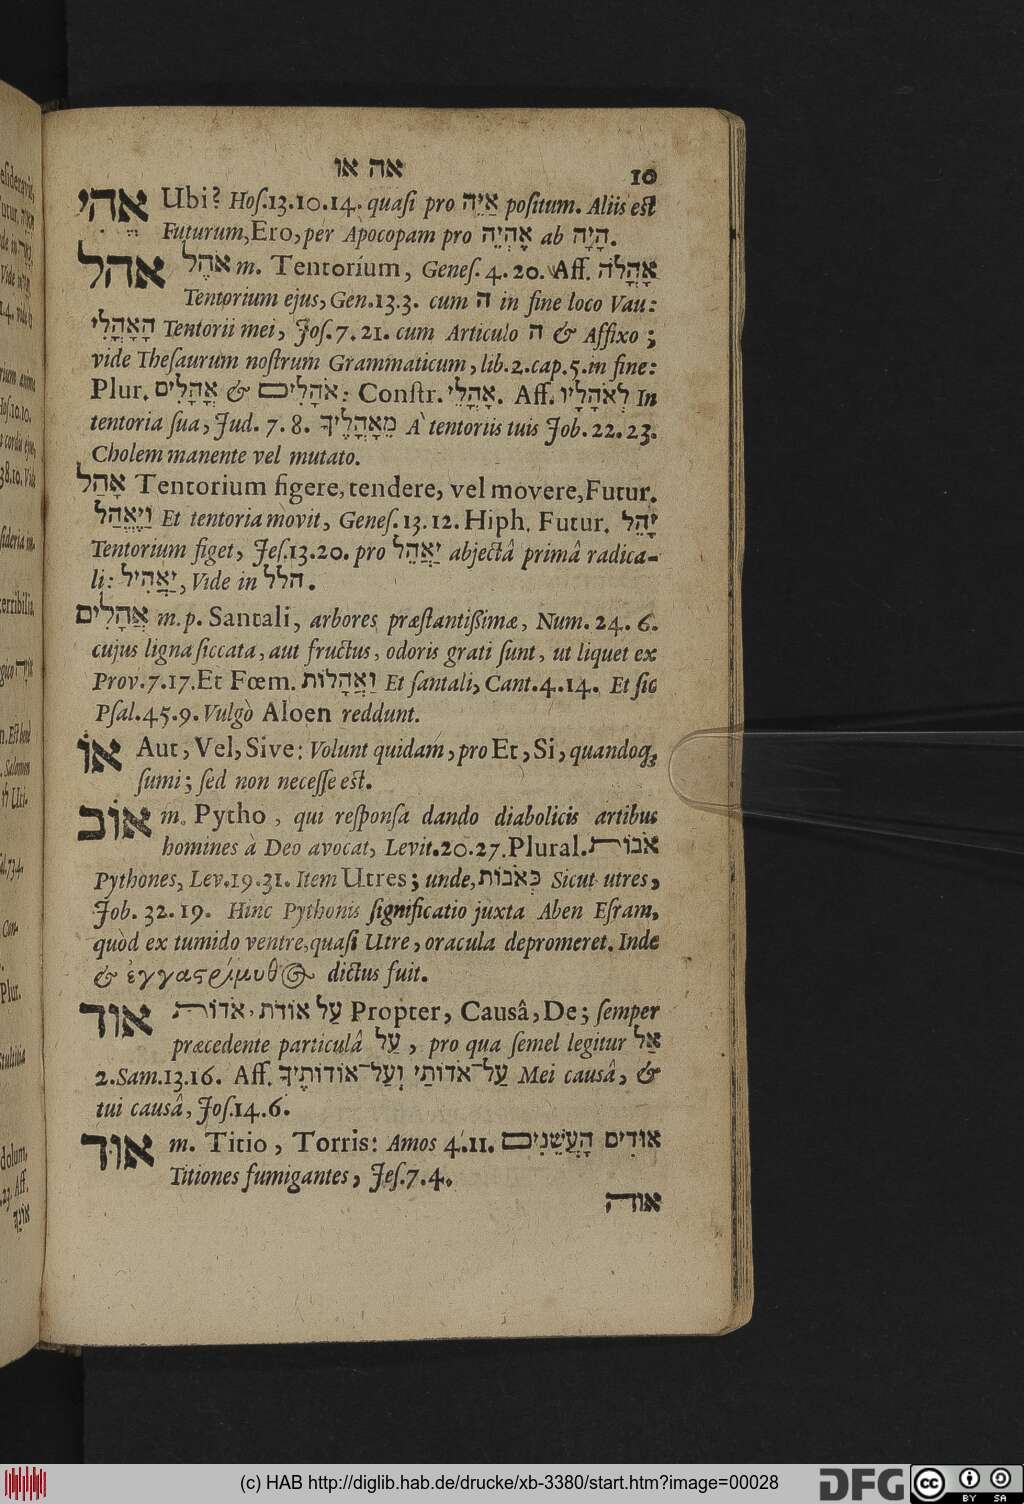 אה או 10
אֱהִי Ubi? Hoſ.13.10.14. quaſi pro אַיֵּה poſitum. Aliis eſt
Futurum, Ero, per Apocopam pro אֶהְיֶה ab הָיָה.
אהל אֹהֶל m. Tentorium, Geneſ. 4. 20. Aff. אָהֳלֹה
Tentorium ejus, Gen.13.3. cum ה in fine loco Vau:
הָאָהֳלִי Tentorii mei, Joſ. 7. 21. cum Articulo ה & Affixo;
vide Theſaurum noſtrum Grammaticum, lib.2.cap.5.in fine:
Plur. אֳהָלִים & אֹהָלִים: Conſtr. אָהֳלֵי. Aff. לְאֹהָלָיו In
tentoria ſua, Jud. 7. 8. מֵאָהֳלֶיךָ A` tentoriis tuis Job. 22. 23.
Cholem manente vel mutato.
אָהַל Tentorium figere, tendere, vel movere, Futur.
וַיֶּאֱהַל Et tentoria movit, Geneſ. 13. 12. Hiph. Futur. יָהֵל
Tentorium figet, Jeſ.13.20. pro יַאֲהֵל abjectâ primâ radica-
li: יַאֲהִיל, Vide in הלל.
אֲהָלִים m.p. Santali, arbores præſtantiſſimæ, Num. 24. 6.
cujus ligna ſiccata, aut fructus, odoris grati ſunt, ut liquet ex
Prov. 7.17. Et Fœm. וַאֲהָלוֹת Et ſantali, Cant. 4. 14. Et ſic
Pſal. 45. 9. Vulgò Aloen reddunt.
אוֹ Aut, Vel, Sive: Volunt quidam, pro Et, Si, quandoq;
ſumi; ſed non neceſſe eſt.
אוֹב m. Pytho, qui reſponſa dando diabolicis artibus
homines à Deo avocat, Levit. 20. 27. Plural. אֹבוֹת
Pythones, Lev.19.31. Item Utres; unde, כְּאֹבוֹת Sicut utres,
Job. 32. 19. Hinc Pythonis ſignificatio juxta Aben Eſram,
quòd ex tumido ventre, quaſi Utre, oracula depromeret. Inde
& ἐγγαστρίμυθος dictus fuit.
אוד עַל אוֹדֹת, אֹדוֹת Propter, Causâ, De; ſemper
præcedente particulâ עַל, pro qua ſemel legitur אַל
2. Sam. 13. 16. Aff. עַל־אֹדוֹתַי וְעַל־אוֹדוֹתֶיךָ Mei causâ, &
tui causâ, Joſ. 14. 6.
אוּד m. Titio, Torris: Amos 4. 11. אוּדִים הָעֲשֵׁנִים
Titiones fumigantes, Jeſ. 7. 4.
אורה
(c) HAB http://diglib.hab.de/drucke/xb-3380/start.htm?image=00028
DFG
cc
BY SA